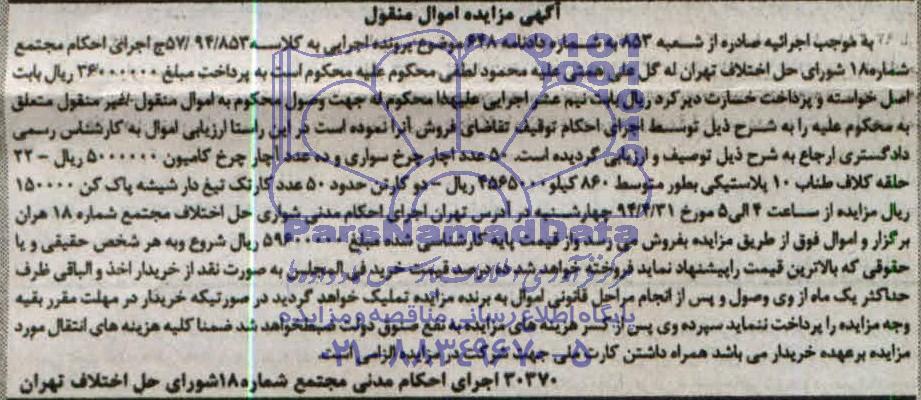 آگهی مزایده اموال منقول
به موجب اجرائیه صادره از شعبه ۸۵۳ به شماره دادنامه ۶۴۸ موضوع پرونده اجرایی به کلاسه ۹۴/۸۵۳ /۵۷ج اجرای احکام مجتمع
شماره۱۸ شورای حل اختلاف تهران له گل علی همتی علیه محمود لطفی محکوم علیه محکوم است به پرداخت مبلغ ۳۶۰۰۰۰۰۰ ریال بابت
اصل خواسته و پرداخت خسارت دیرکرد ریال بابت نیم عشر اجرایی علیهذا محکوم له جهت وصول محکوم به اموال منقول-غیر منقول متعلق
به محکوم علیه را به شرح ذیل توسط اجرای احکام توقیف تقاضای فروش آنرا نموده است در این راستا ارزیابی اموال به کارشناس رسمی
دادگستری ارجاع به شرح ذیل توصیف و ارزیابی گردیده است. ۵۰ عدد آچار چرخ سواری و ده عدد آچار چرخ کامیون ۵۰۰۰۰۰۰ ریال – ۲۲
حلقه کلاف طناب ۱۰ پلاستیکی بطور متوسط ۸۶۰ کیلو ریال – دو کارتن حدود ۵۰ عدد کارتک تیغ دار شیشه پاک کن ۱۵۰۰۰۰
ریال مزایده از ساعت ۴ الی۵ مورخ ۹۴/۴/۳۱ چهارشنبه در آدرس تهران اجرای احکام مدنی شورای حل اختلاف مجتمع شماره ۱۸ هران
برگزار و اموال فوق از طریق مزایده بفروش می رسد واز قیمت پایه کارشناسی شده مبلغ ریال شروع وبه هر شخص حقیقی و یا
حقوقی که بالاترین قیمت راپیشنهاد نماید فروخته خواهد شد ده درصد قیمت خرید فی المجلس به صورت نقد از خریدار اخذ و الباقی ظرف
حداکثر یک ماه از وی وصول و پس از انجام مراحل قانونی اموال به برنده مزایده تملیک خواهد گردید در صورتیکه خریدار در مهلت مقرر بقیه
وجه مزایده را پرداخت ننماید سپرده وی پس از کسر هزینه های مزایده به نفع صندوق دولت ضبط خواهد شد ضمنا کلیه هزینه های انتقال مورد
مزایده برعهده خریدار می باشد همراه داشتن کارت ملی جهت شرکت در مزایده الزامی است.
۳۰۳۷۰ اجرای احکام مدنی مجتمع شماره۱۸شورای حل اختلاف تهران
ParsNamadData
پایگاه اطلاع رسانی مناقصه و مزایده
۰۲۱-۸۸۳۴۹۶۷۰-۵